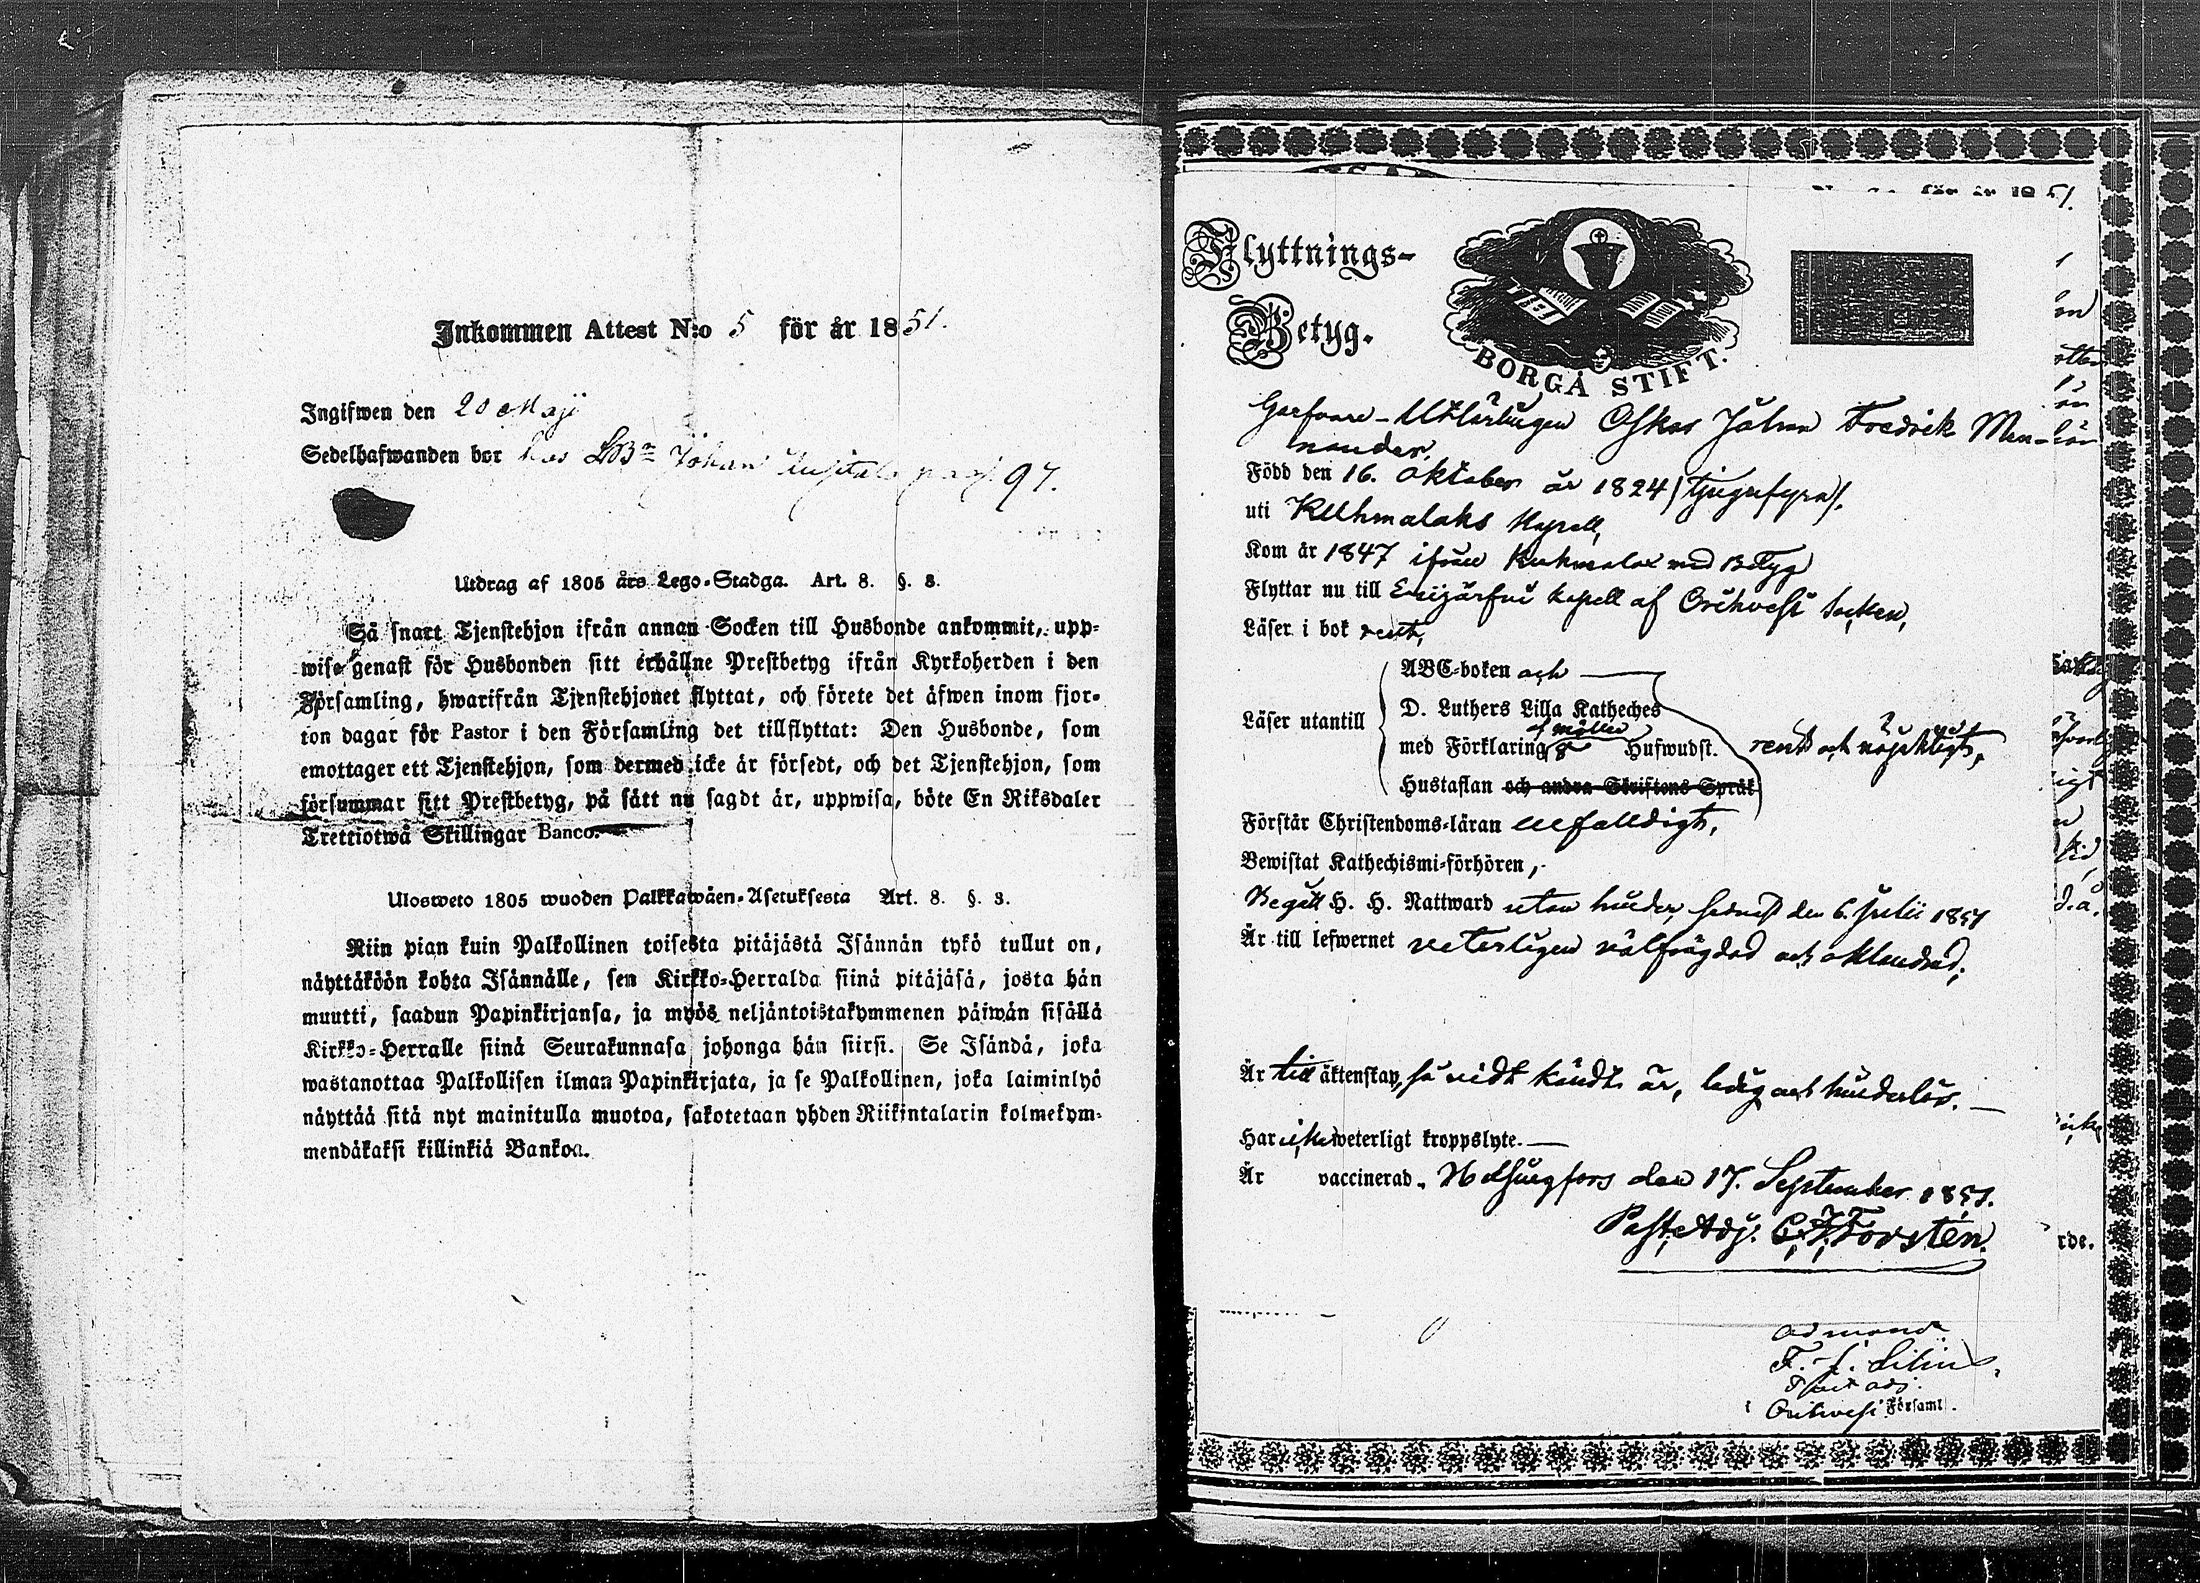 Inkommen Attest N:o 5 för år 1851.
Ingifwen den 20 Maji
Sedelhafwanden bor hos Johan pag. 97.
Utdrag af 1805 års Lego-Stadga. Art. 8. §. 8.
Så snart Tjenstehjon ifrån annan Socken till Husbonde ankommit, upp-
wise genast för Husbonden sitt erhållne Prestbetyg ifrån Kyrkoherden i den
Församling, hwarifrån Tjenstehjonet flyttat, och förete det äfwen inom fjor-
ton dagar för Pastor i den Församling det tillflyttat: Den Husbonde, som
emottager ett Tjenstehjon, som dermed icke är försedt, och det Tjenstehjon, som
försummar sitt Prestbetyg, på sätt nu sagdt är, uppwisa, böte En Riksdaler
Trettiotwå Skillingar Banco.
Ulosweto 1805 wuoden Palkkawäen-Asetuksesta Art. 8. §. 8.
Niin pian kuin Palkollinen toisesta pitäjästä Isännän tykö tullut on,
näyttäköön kohta Isännälle, sen Kirkko-Herralda siinä pitäjäsä, josta hän
muutti, saadun Papinkirjansa, ja myös neljäntoistakymmenen päiwän sisällä
Kirkko-Herralle siinä Seurakunnasa johonga hän siirsi. Se Isändä, joka
wastanottaa Palkollisen ilman Papinkirjata, ja se Palkollinen, joka laiminlyö
näyttää sitä nyt mainitulla muotoa, sakotetaan yhden Riikintalarin kolmekym-
mendäkaksi killinkiä Bankoa.
för år 1851.
Flyttnings-
Betyg.
BORGÅ STIFT.
Garfvare-Utlärlingen Oskar Johan Fredrik Men-
nander,
Född den 16. Oktober år 1824 (tjugufyra),
uti Kuhmalaks Kapell,
Kom år 1847 ifrån Kuhmalax med Betyg
Flyttar nu till Eräjärfvi kapell af Orihvesi Socken,
Läser i bok rent,
ABC-boken och
D. Luthers Lilla Katheches
Läser utantill
af Möller
med Förklaring 8 Hufwudst. rent och nöjaktigt,
Hustaflan och andra Skriftens Språk
Förstår Christendoms-läran enfaldigt,
Bewistat Kathechismi-förhören,
Begått H. H. Nattward utan hinder, sednast den 6. Julii 1851
Är till lefwernet veterligen välfrägdad och oklandrad,
Är till äktenskap, så vidt kändt är, ledig och hinderlös.
Har icke weterligt kroppslyte.
Är vaccinerad. Helsingfors den 17. September 1851.
Past. Adj. Forstén.
Past. adj.
i Orihvesi Församl.